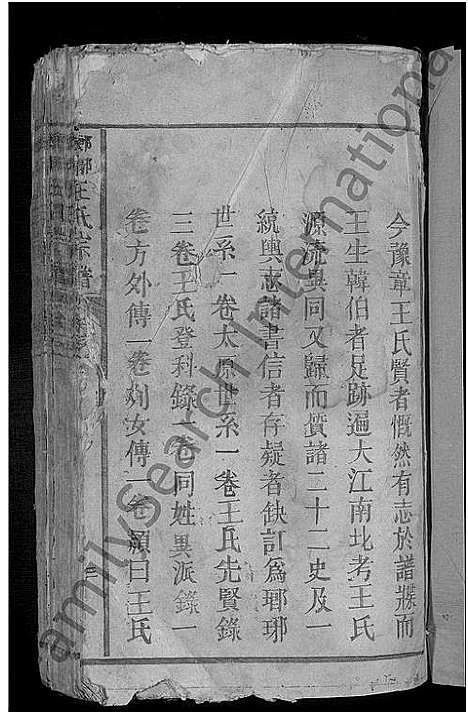 今豫章王氏賢者慨然有志於譜牒而
王生韓伯者足跡遍大江南北考王氏
源流異同又歸而質諸二十二史及一
統輿志諸書信者存疑者缺訂為瑯琊
世系一卷太原世系一卷王氏先賢錄
三卷王氏登科錄一卷同姓異派錄一
卷方外傳一卷列女傳一卷顏曰王氏
王氏宗譜
FamilySearch International